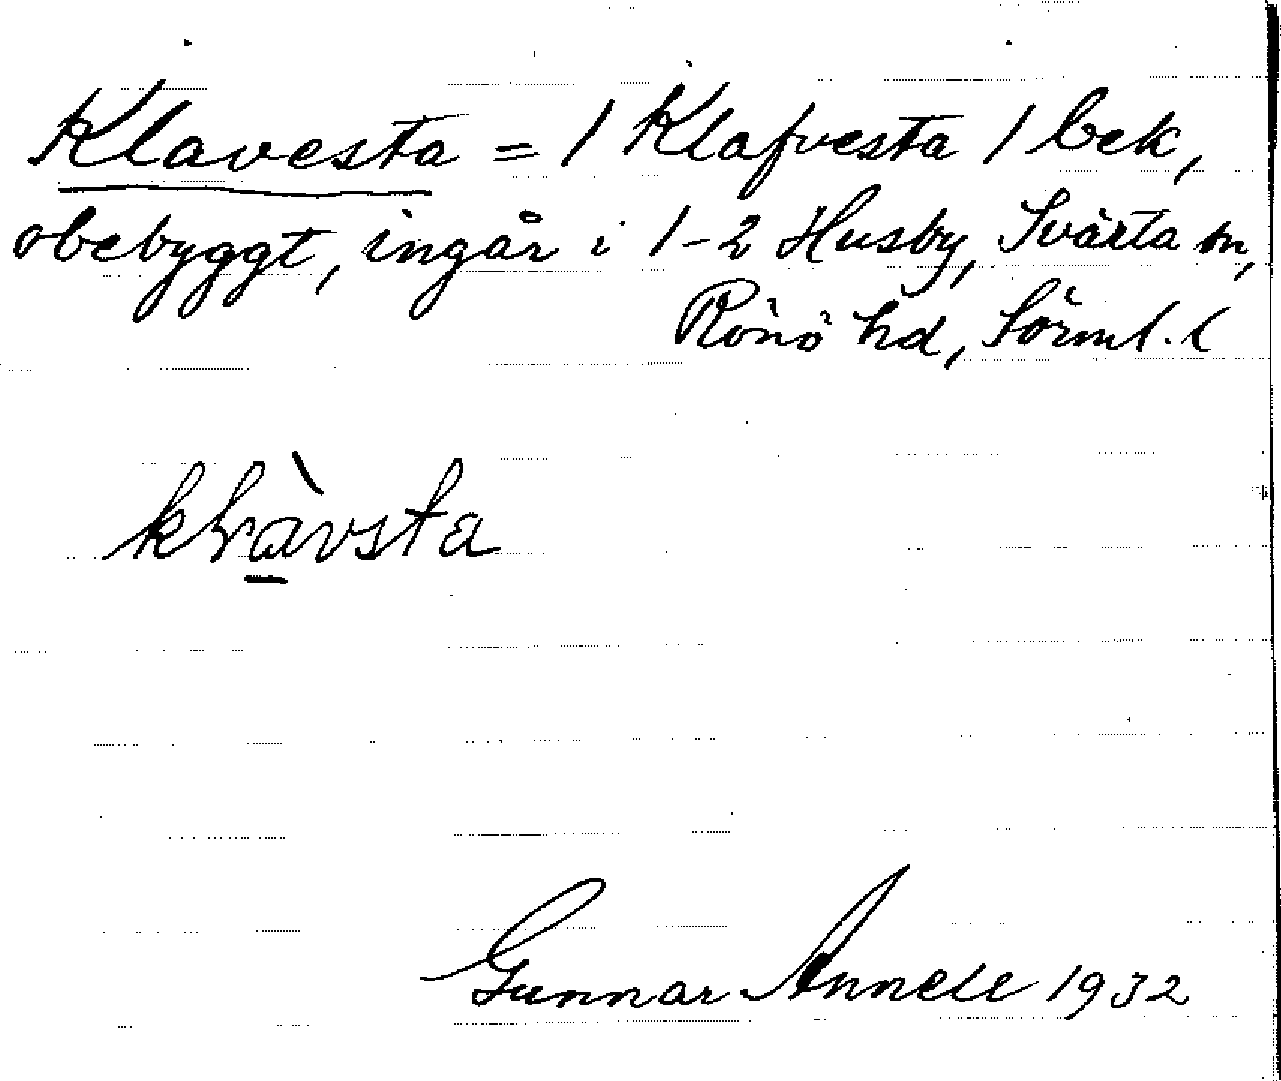 Klavesta = 1 Klafvesta 1 bek,
obebyggt, ingår i 1-2 Husby, Svärta sn,
Rönö hd, Sörml. l
Gunnar Annell 1932